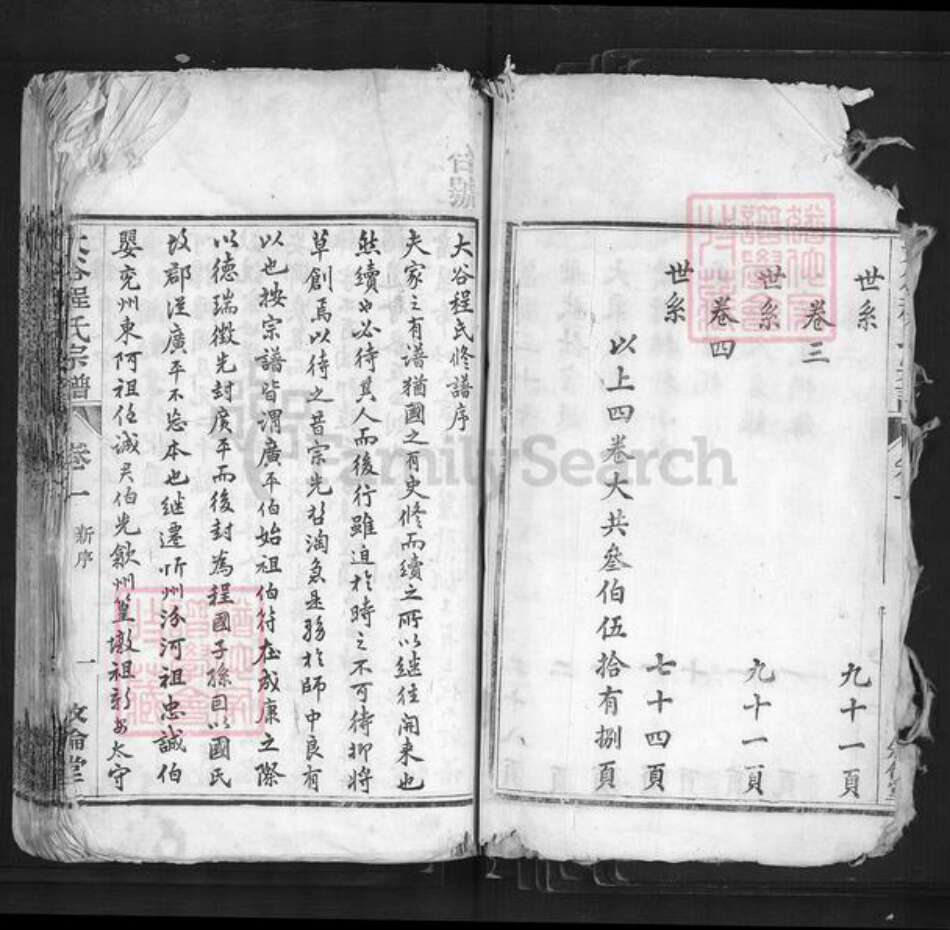 世系
九十一頁
卷三
世系
九十一頁
卷四
世系
七十四頁
以上四卷大共叁伯伍拾有捌頁
大谷程氏修譜序
夫家之有譜猶國之有史修而續之所以継往開来也
然續也必待其人而後行雖迫於時之不可待抑將
草創焉以待之昔宗先哲淘急是務於師中良有
以也按宗譜皆謂廣平伯始祖伯符在成康之際
以德瑞徵先封廣平而後封為程國子孫因以國氏
故郡從廣平不忘本也継遷忻州汾河祖忠誠伯
嬰兖州東阿祖任誠吴伯先歙州篁墩祖新安太守
谷程氏宗譜
卷一
新序
一
文倫堂
FamilySearch